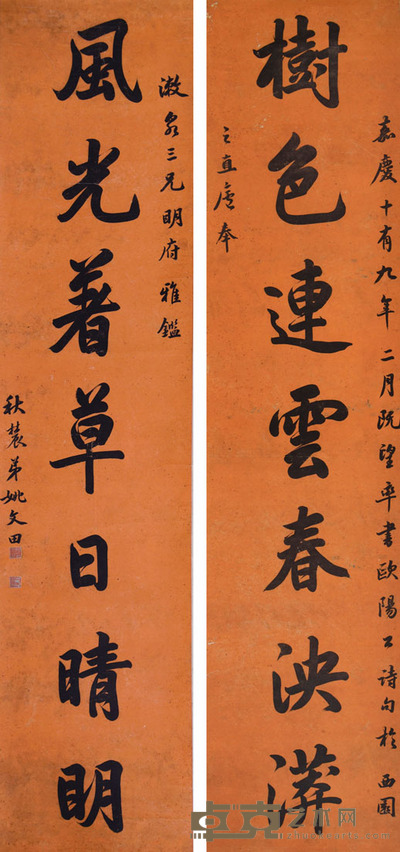 嘉慶十有九年二月既望率書歐陽公詩句於西園
樹色連雲春泱漭
之直廬奉
漱泉三兄明府雅鑑
風光著草日晴明
秋農弟姚文田
卓克艺术网